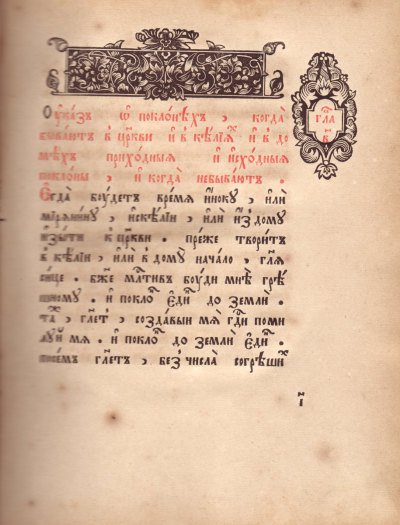 Оу҆ка́зъ ѡ҆ покло́нѣхъ , когда̀
быва́ютъ въ цр҃кви и҆ в кѣ́лїѧⷯ и҆ в до
мѣ́хъ прихо́дныѧ и҆ и҆схо́дныѧ
покло́ны , и҆ когда̀ небыва́ютъ .
Є҆гда̀ бꙋ́детъ вре́мѧ и҆́нокꙋ , и҆лѝ
мірѧ́нинꙋ , и҆скѣ́лїи , и҆лѝ и҆з̾ до́мꙋ
и҆зы́ти к цр҃кви . пре́же твори́тъ
в кѣ́лїи , и҆лѝ в до́мꙋ нача́ло , гл҃ѧ
си́це . бж҃е млⷭ҇тивъ бꙋ́ди мнѣ̀ грѣ́
шномꙋ . и҆ покло́ⷩ є҆ди́ⷩ до землѝ .
та́ⷤ , гл҃етъ , созда́выи мѧ̀ гдⷭ҇и поми́
лꙋи мѧ̀ . и҆ покло́ⷩ до землѝ є҆ди́ⷩ .
посе́мъ гл҃етъ , без̾ числа̀ согрѣши́ⷯ
Гла
в҃
н҃
і